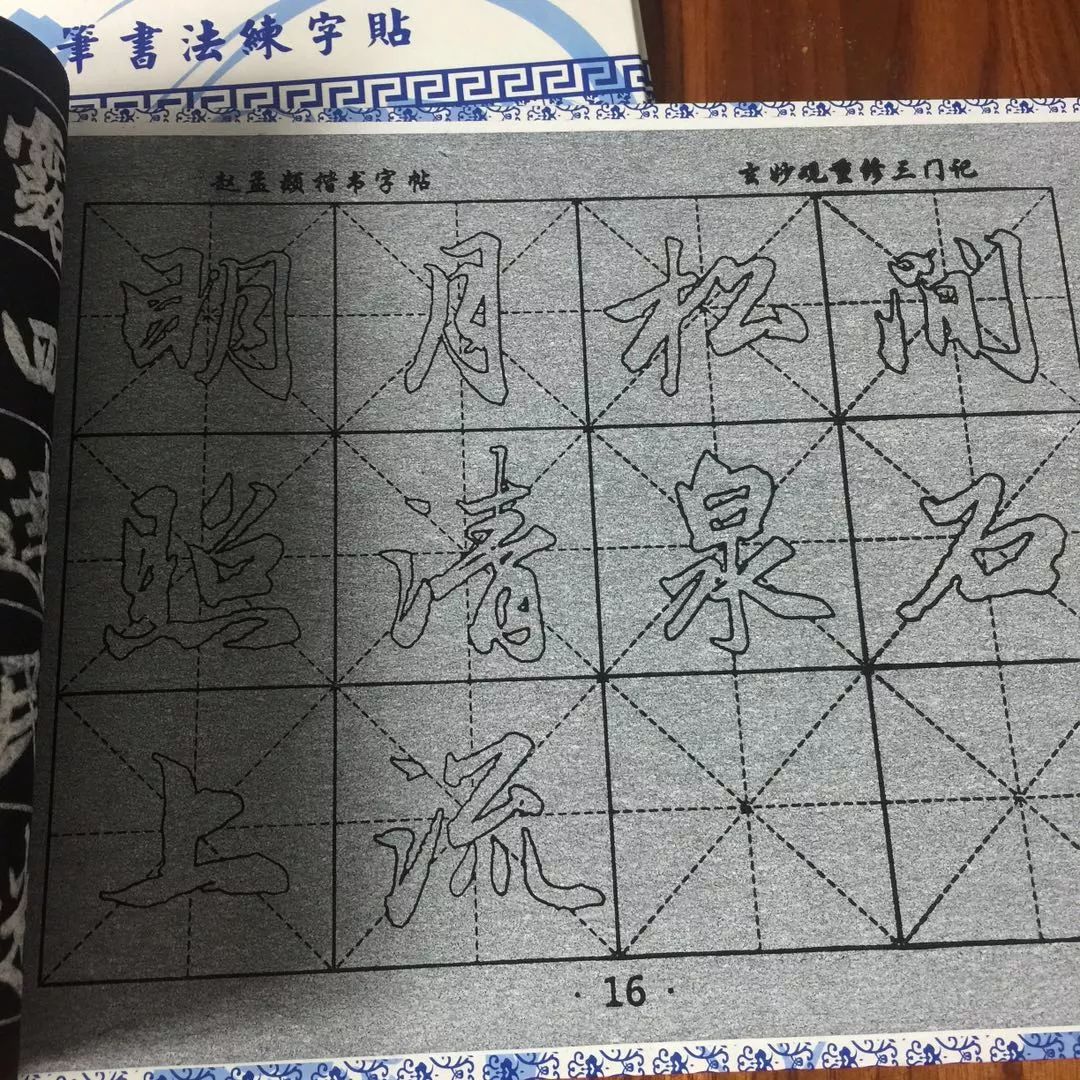 筆書法練字貼
赵孟頫楷书字帖 玄妙观重修三门记
明月松间
照清泉石
上流
· 16 ·